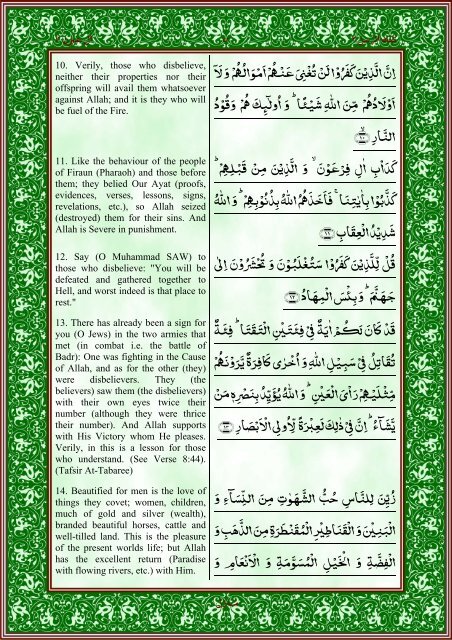 10. Verily, those who disbelieve,
neither their properties nor their
offspring will avail them whatsoever
against Allah; and it is they who will
be fuel of the Fire.
اِنَّ الَّذِيْنَ كَفَرُوْا لَنْ تُغْنِىَ عَنْهُمْ اَمْوَالُهُمْ وَلَآ
اَوْلَادُهُمْ مِّنَ اللّٰهِ شَيْـًٔا ؕ وَ اُولٰٓئِكَ هُمْ وَقُوْدُ
النَّارِ ۙ‏﴿۱۰﴾
11. Like the behaviour of the people
of Firaun (Pharaoh) and those before
them; they belied Our Ayat (proofs,
evidences, verses, lessons, signs,
revelations, etc.), so Allah seized
(destroyed) them for their sins. And
Allah is Severe in punishment.
كَدَاْبِ اٰلِ فِرْعَوْنَ ۙ وَ الَّذِيْنَ مِنْ قَبْلِهِمْ ؕ
كَذَّبُوْا بِاٰيٰتِنَا ۚ فَاَخَذَهُمُ اللّٰهُ بِذُنُوْبِهِمْ ؕ وَ اللّٰهُ
شَدِيْدُ الْعِقَابِ ﴿۱۱﴾
12. Say (O Muhammad SAW) to
those who disbelieve: "You will be
defeated and gathered together to
Hell, and worst indeed is that place to
rest."
قُلْ لِّلَّذِيْنَ كَفَرُوْا سَتُغْلَبُوْنَ وَ تُحْشَرُوْنَ اِلٰى
جَهَنَّمَ ؕ وَ بِئْسَ الْمِهَادُ ﴿۱۲﴾
13. There has already been a sign for
you (O Jews) in the two armies that
met (in combat i.e. the battle of
Badr): One was fighting in the Cause
of Allah, and as for the other (they)
were disbelievers. They (the
believers) saw them (the disbelievers)
with their own eyes twice their
number (although they were thrice
their number). And Allah supports
with His Victory whom He pleases.
Verily, in this is a lesson for those
who understand. (See Verse 8:44).
(Tafsir At-Tabaree)
قَدْ كَانَ لَكُمْ اٰيَةٌ فِىْ فِئَتَيْنِ الْتَقَتَا ؕ فِئَةٌ
تُقَاتِلُ فِىْ سَبِيْلِ اللّٰهِ وَ اُخْرٰى كَافِرَةٌ يَّرَوْنَهُمْ
مِّثْلَيْهِمْ رَاْىَ الْعَيْنِ ؕ وَ اللّٰهُ يُؤَيِّدُ بِنَصْرِهٖ مَنْ
يَّشَآءُ ؕ اِنَّ فِىْ ذٰلِكَ لَعِبْرَةً لِّاُولِى الْاَبْصَارِ ﴿۱۳﴾
14. Beautified for men is the love of
things they covet; women, children,
much of gold and silver (wealth),
branded beautiful horses, cattle and
well-tilled land. This is the pleasure
of the present worlds life; but Allah
has the excellent return (Paradise
with flowing rivers, etc.) with Him.
زُيِّنَ لِلنَّاسِ حُبُّ الشَّهَوٰتِ مِنَ النِّسَآءِ وَ
الْبَنِيْنَ وَ الْقَنَاطِيْرِ الْمُقَنْطَرَةِ مِنَ الذَّهَبِ وَ
الْفِضَّةِ وَ الْخَيْلِ الْمُسَوَّمَةِ وَ الْاَنْعَامِ وَ